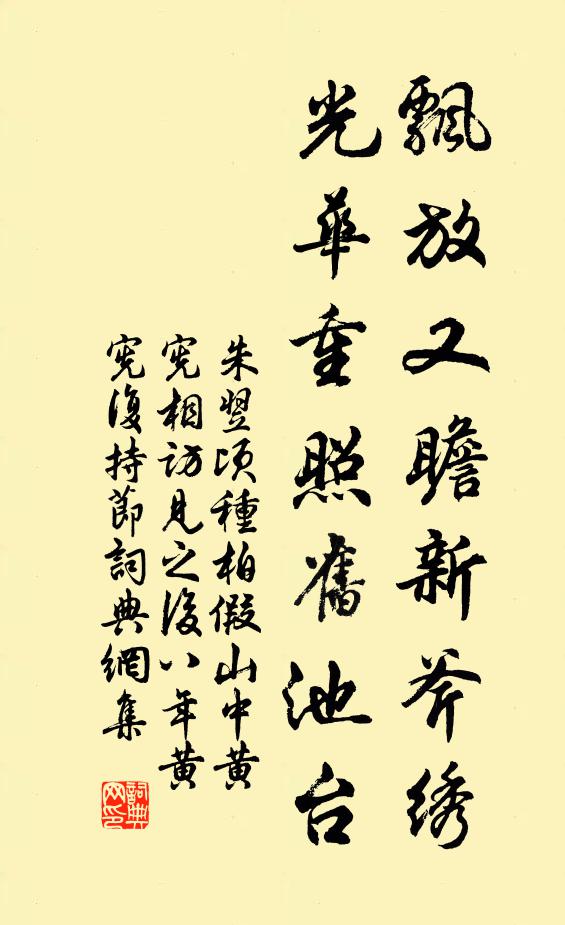 飄放又瞻新斧绣
光華重照舊池台
朱翌頃種柏假山中黄
宪相訪見之後八年黄
宪復持節詞典網集
詞典网印